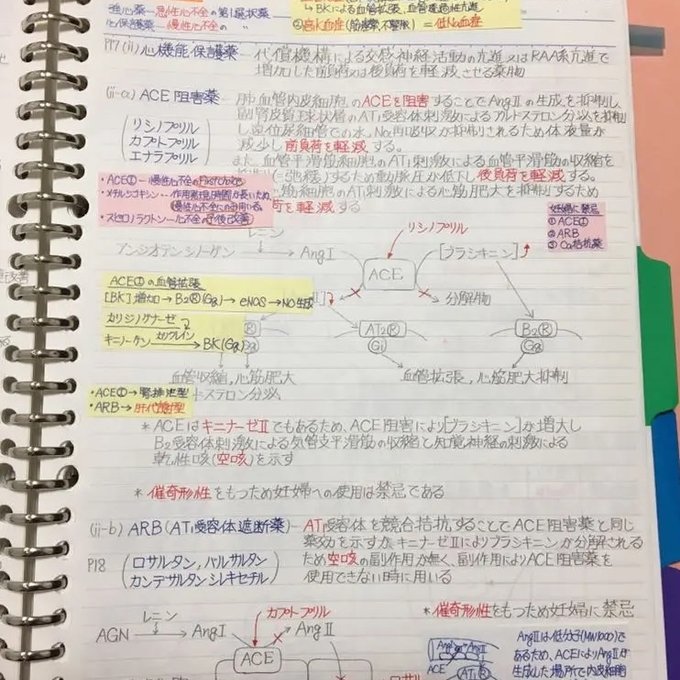 強心薬 - 急性心不全の第1選択薬
心保護薬 - 慢性心不全の 〃
→BKによる血管拡張、血管透過性亢進
②高K血症 = 低Na血症
P17 (ii) 心機能保護薬 - 代償機構による交感神経活動の亢進又はRAA系亢進で
増加した前負荷又は後負荷を軽減させる薬物
(ii-a) ACE阻害薬 - 肺血管内皮細胞のACEを阻害することでAngⅡの生成を抑制し
副腎皮質球状層のAT1受容体刺激によるアルドステロン分泌を抑制
(リシノプリル
カプトプリル
エナラプリル)
し遠位尿細管での水、Na再吸収が抑制されるため体液量が
減少し前負荷を軽減する。
また、血管平滑筋細胞のAT1刺激による血管平滑筋の収縮を
するため動脈圧が低下し後負荷を軽減する。
筋細胞のAT1刺激による心筋肥大を抑制するため
荷を軽減する
・ACE① - 慢性心不全のfirst choice
・メチルジゴキシン - 作用発現時間が長いため、
慢性心不全にのみ用いる。
・スピロノラクトン - 心不全の予後改善
妊婦に禁忌
① ACE①
② ARB
③ Ca拮抗薬
レニン
リシノプリル
アンジオテンシノーゲン → AngⅠ
ACE
[ブラジキニン]↑
分解物
ACE①の血管拡張
[BK]増加→B2(R)(Gq)→eNOS→NO生成
カリジノゲナーゼ
カリクレイン
キニノーゲン → BK(Gq)
Ⅱ]↓
(R)
Gq
AT2(R)
Gi
B2(R)
Gq
血管収縮、心筋肥大
ドステロン分泌
血管拡張、心筋肥大抑制
・ACE①→腎排泄型
・ARB→肝代謝型
* ACEはキニナーゼⅡでもあるため、ACE阻害により[ブラジキニン]が増大し
B2受容体刺激による気管支平滑筋の収縮と知覚神経の刺激による
乾性咳(空咳)を示す
* 催奇形性をもつため妊婦への使用は禁忌である
(ii-b) ARB(AT1受容体遮断薬) - AT1受容体を競合拮抗することでACE阻害薬と同じ
薬効を示すが、キニナーゼⅡによりブラジキニンが分解される
P18
(ロサルタン、バルサルタン
カンデサルタンシレキセチル)
ため空咳の副作用が無く、副作用によりACE阻害薬を
使用できない時に用いる
* 催奇形性をもつため妊婦に禁忌
レニン
カプトプリル
AGN → AngⅠ
AngⅡ
ACE
ロサル
ACE
AT1(R)
AngⅡは低分子(MW1000)で
あるため、ACEによりAngⅡが
生成した場所で内皮細胞